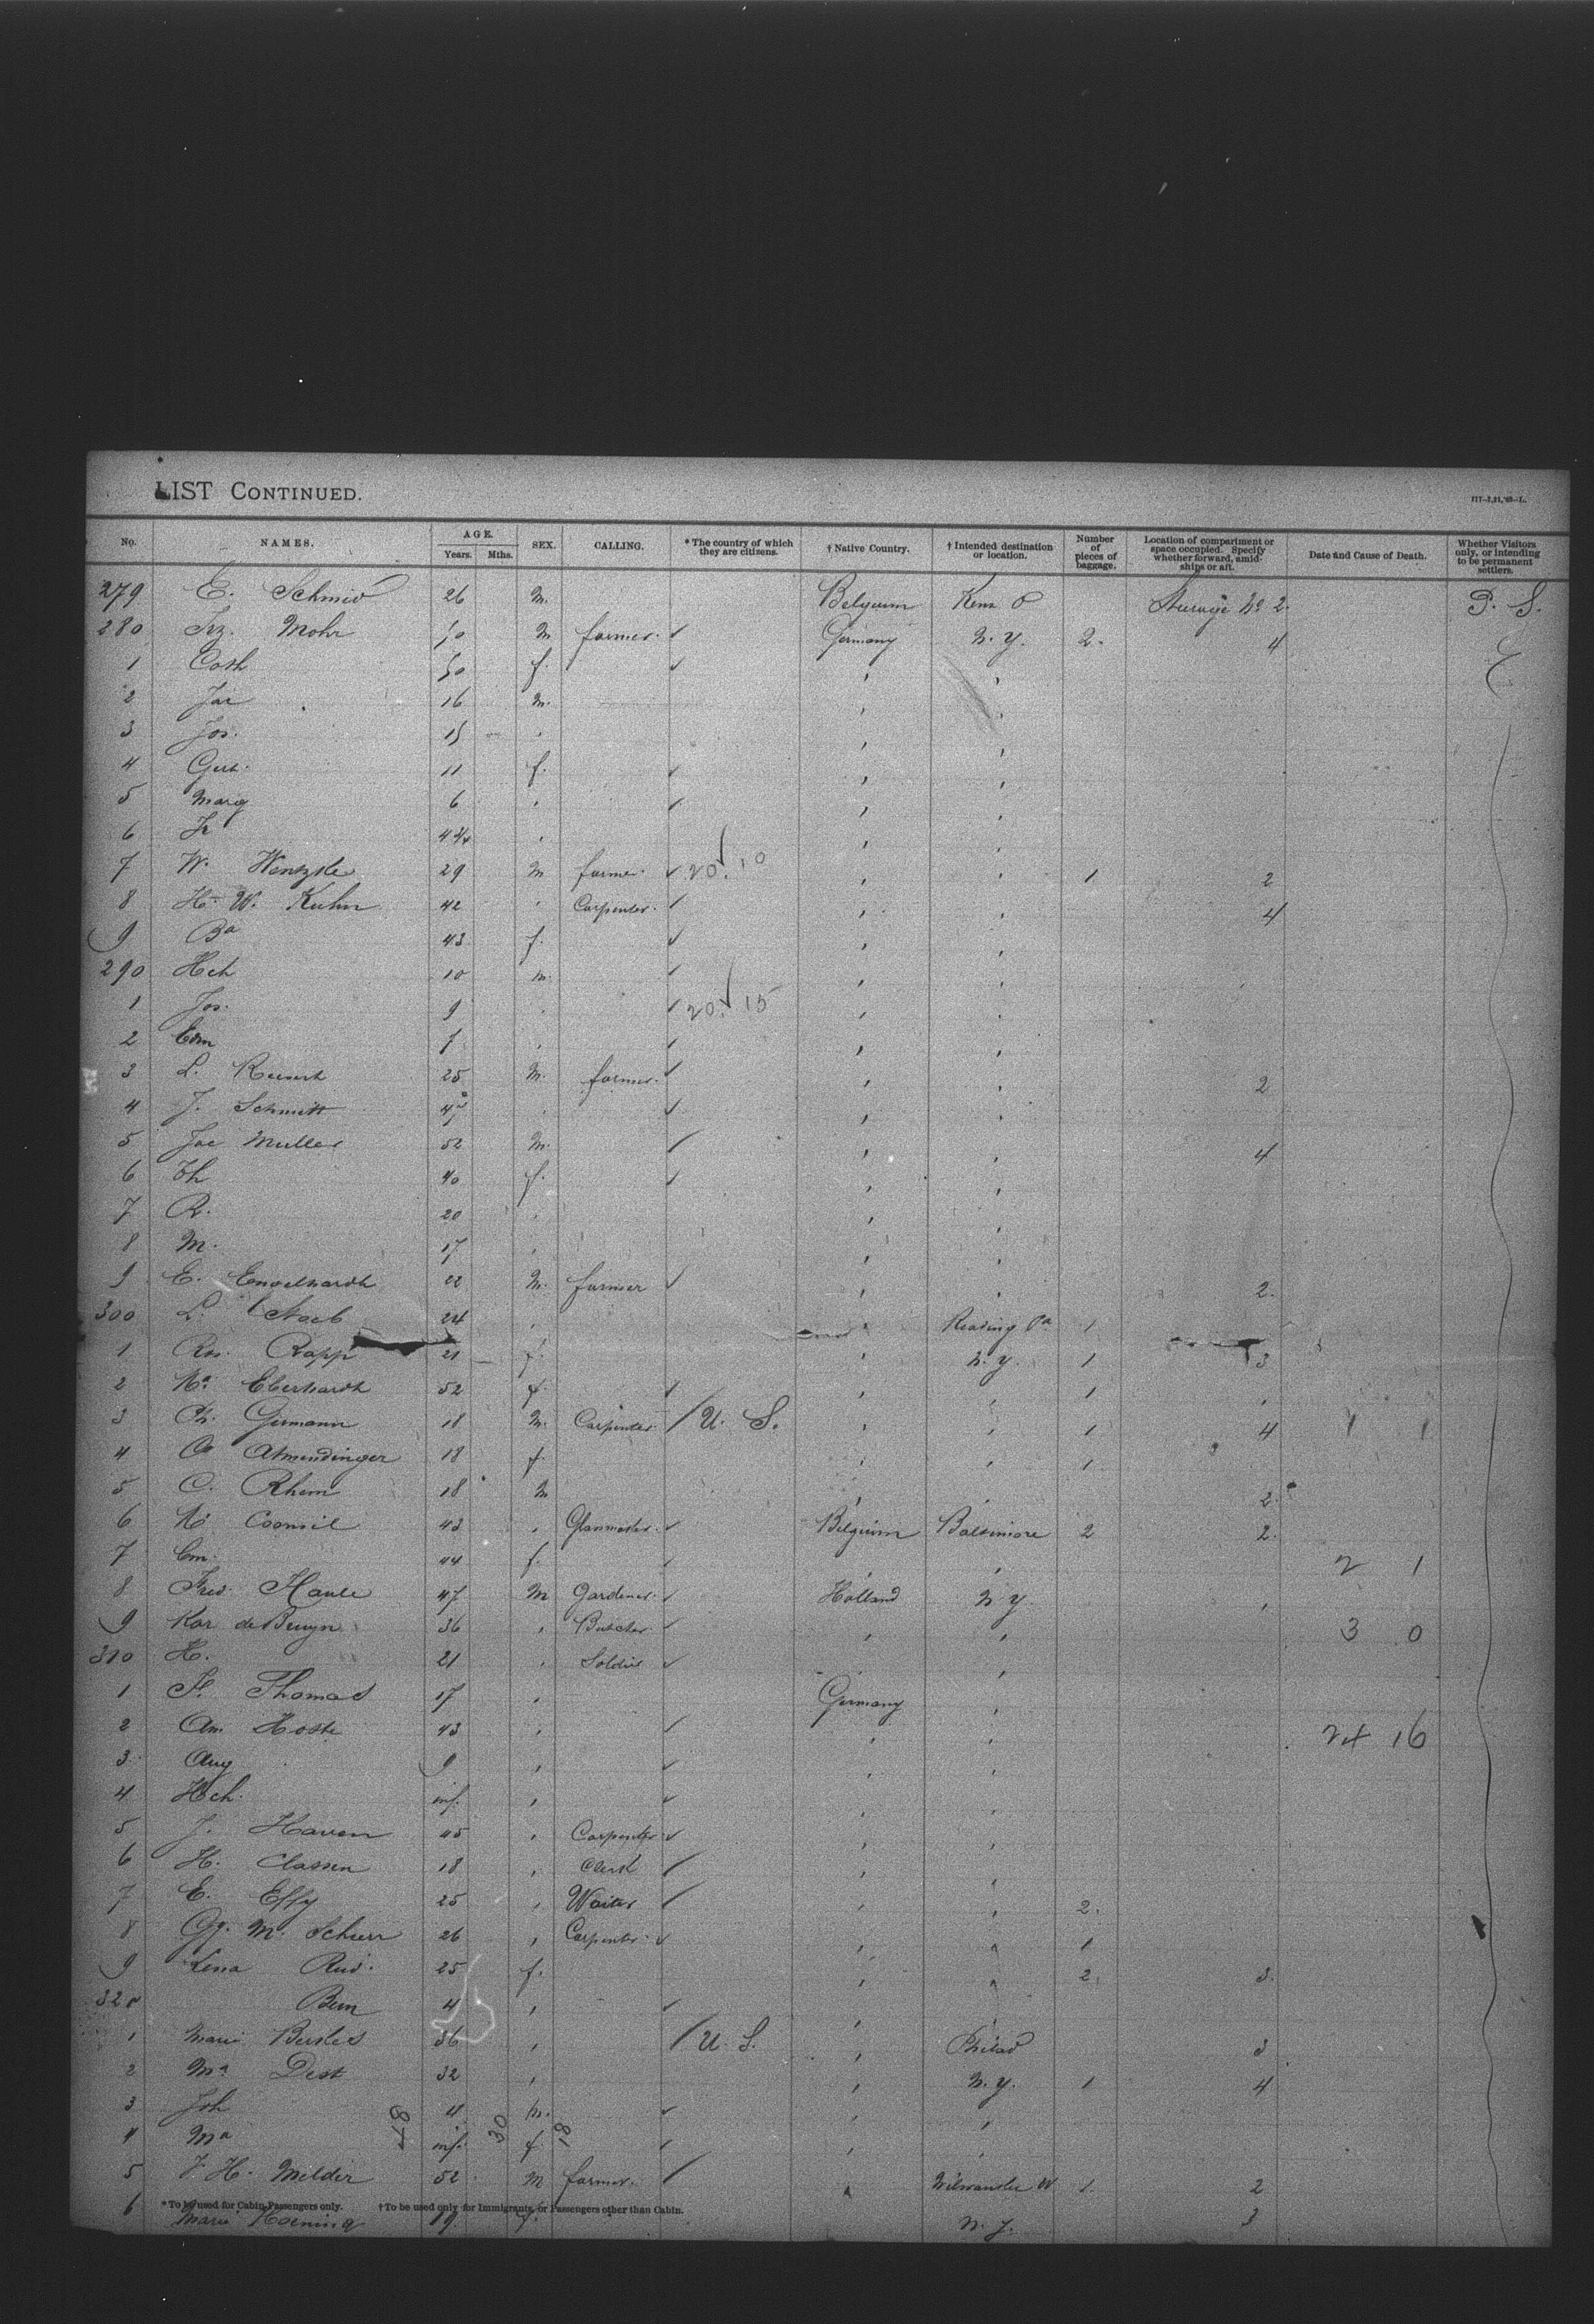 LIST CONTINUED.
III-7,21,'93-L.
No. NAMES. AGE. Years. Mths. SEX. CALLING. * The country of which they are citizens. † Native Country. † Intended destination or location. Number of pieces of baggage. Location of compartment or space occupied. Specify whether forward, amidships or aft. Date and Cause of Death. Whether Visitors only, or intending to be permanent settlers.
279 E. Schmid 26 M. Belgium Steerage No 2. P. S.
280 Frz. Mohr 50 M farmer. ✓ Germany N. Y. 2. 4
1 Cath 50 f. ✓ " "
2 Jac 16 M. " "
3 Jos. 15 " " "
4 Gert. 11 f. ✓ " "
5 Marg 6 " ✓ " "
6 Fr 4 3/4 " " "
7 W. Wentzke 29 M farmer. ✓ 20 ✓ 10 " " 1 2
8 H. W. Kuhn 42 " Carpenter. ✓ " " 4
9 Ba 43 f. ✓ " "
290 Hch 10 m. ✓ " "
1 Jos. 9 " ✓ 20 ✓ 15 " "
2 Edm 7 " ✓ " "
3 L. 25 M. farmer. ✓ " " 2
4 J. Schmitt " ✓ " "
5 Jac Muller 52 M. ✓ " " 4
6 Th 40 f. ✓ " "
7 R. 20 " " "
8 M. 17 " " "
9 E. Engelhardt 22 M. farmer ✓ " " 2.
300 L. Staeb 24 " " Reading Pa 1
1 Ros. Rapp 21 f. " N. Y. 1 3
2 Eberhardt 52 f. ✓ " " 1 "
3 Germann 18 M. Carpenter. ✓ U. S. " " 1 4 1 1
4 Atmendinger 18 f. " " 1
5 C. Rhem 18 M " " 2.
6 43 " ✓ Belgium Baltimore 2 2.
7 Em. 44 f. ✓ " " 2 1
8 Fred. Haule 47 M Gardener. ✓ Holland N Y "
9 Kar de Bruyn 36 " Butcher. ✓ " " 3 0
310 H. 21 " Soldier ✓ " "
1 Thomas 17 " Germany "
2 Am. Hoste 43 " ✓ " " 24 16
3 Aug 9 " ✓ " "
4 Hch. inf. " ✓ " "
5 J. Haven 45 " Carpenter. ✓ " "
6 H. Classen 18 " Clerk ✓ " "
7 E. Effy 25 " Waiter ✓ " " 2.
8 Gg. M. Schurr 26 " Carpenter. ✓ " " 1
9 Lena Rud. 25 f. " " 2. 3.
320 Bern 4 " ✓ " "
1 Marie 36 " ✓ U. S. " Philad 3
2 Ma Dest 32 " " N. Y. 1 4
3 Joh 4 m. ✓ " "
4 Ma inf. f. ✓ " "
48 30 18
5 J. H. Melder 52 M farmer. ✓ " 1. 2
6 Marie Hoenina 19. f. N. Y. 3
* To be used for Cabin Passengers only. † To be used only for Immigrants, or Passengers other than Cabin.